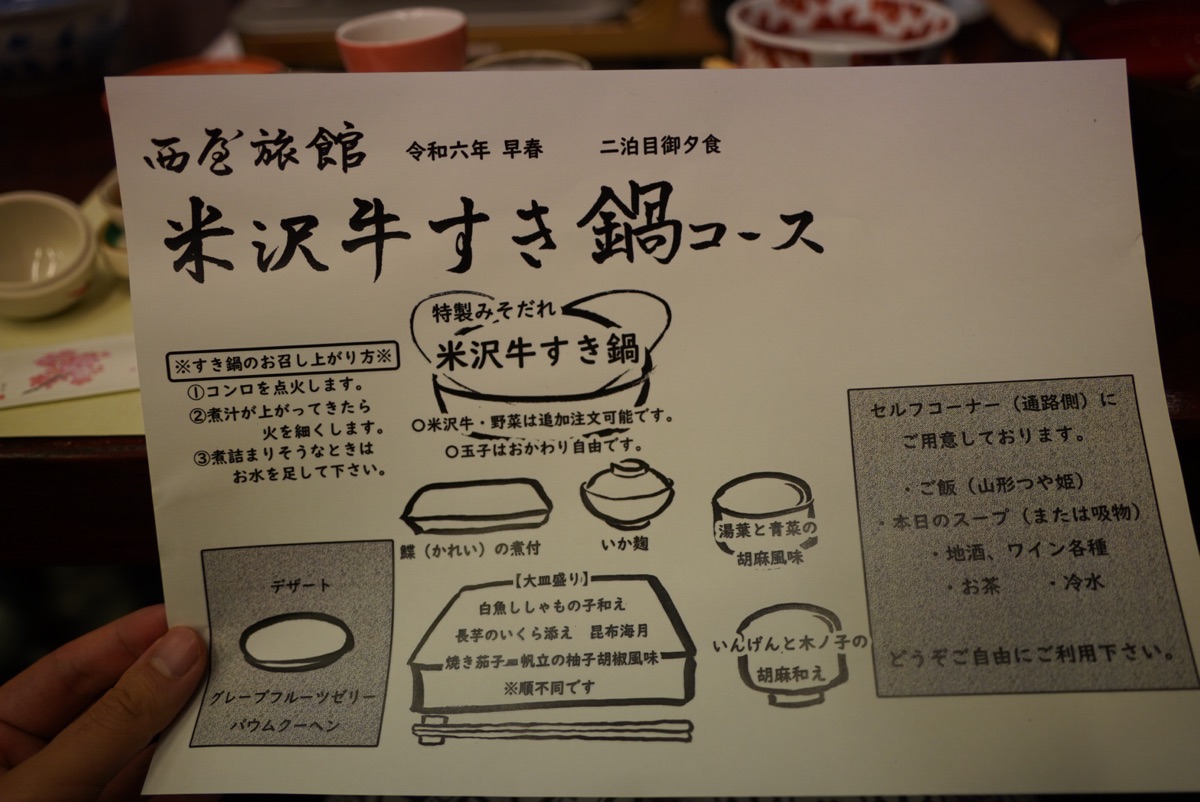 西屋旅館 令和六年 早春 二泊目御夕食
米沢牛すき鍋コース
特製みそだれ
米沢牛すき鍋
○米沢牛・野菜は追加注文可能です。
○玉子はおかわり自由です。
※すき鍋のお召し上がり方※
①コンロを点火します。
②煮汁が上がってきたら
火を細くします。
③煮詰まりそうなときは
お水を足して下さい。
鰈（かれい）の煮付
いか麹
湯葉と青菜の
胡麻風味
【大皿盛り】
白魚ししゃもの子和え
長芋のいくら添え 昆布海月
焼き茄子 帆立の柚子胡椒風味
※順不同です
いんげんと木ノ子の
胡麻和え
デザート
グレープフルーツゼリー
バウムクーヘン
セルフコーナー（通路側）に
ご用意しております。
・ご飯（山形つや姫）
・本日のスープ（または吸物）
・地酒、ワイン各種
・お茶 ・冷水
どうぞご自由にご利用下さい。